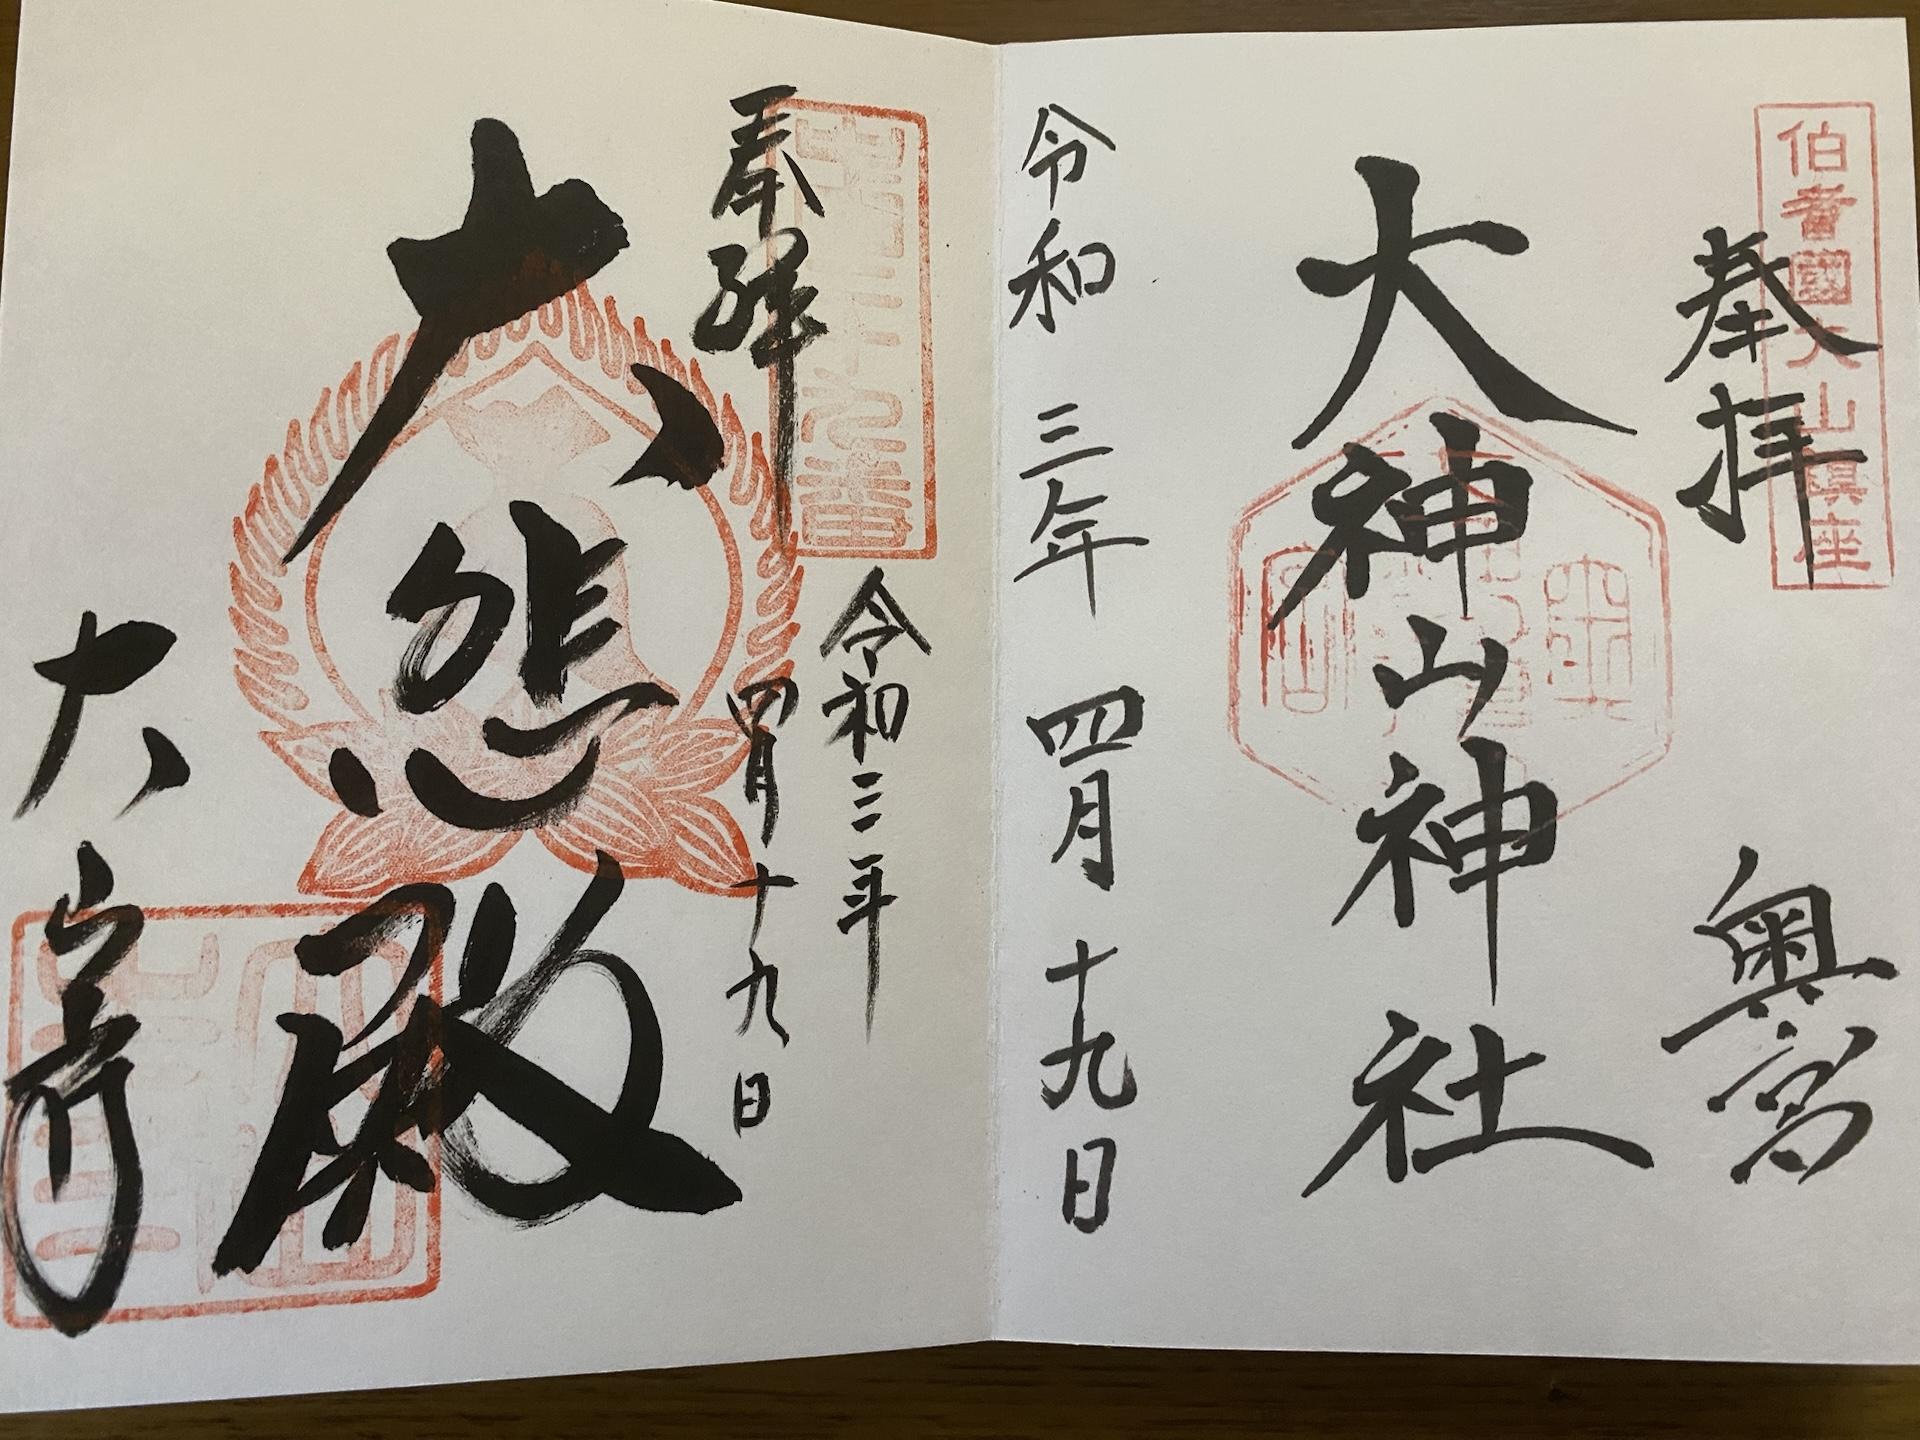 奉拝
奥宮
伯耆國大山鎮座
大神山神社
令和三年四月十九日
奉拝
令和三年
四月十九日
大悲殿
大山寺